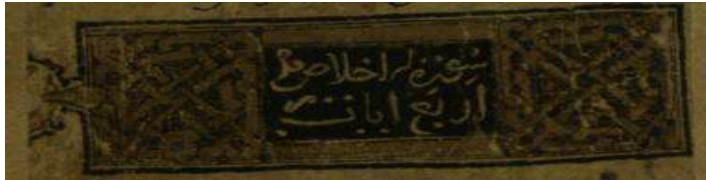 سورة الاخلاص
اربع ايات